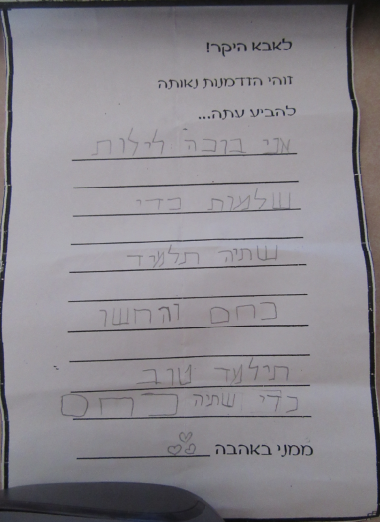 לאבא היקר!
זוהי הזדמנות נאותה
להביע עתה...
אני בוכה לילות
שלמות כדי
שתיה תלמיד
כחם והחשו
תילמד טוב
כדי שתיה כחם
ממני באהבה